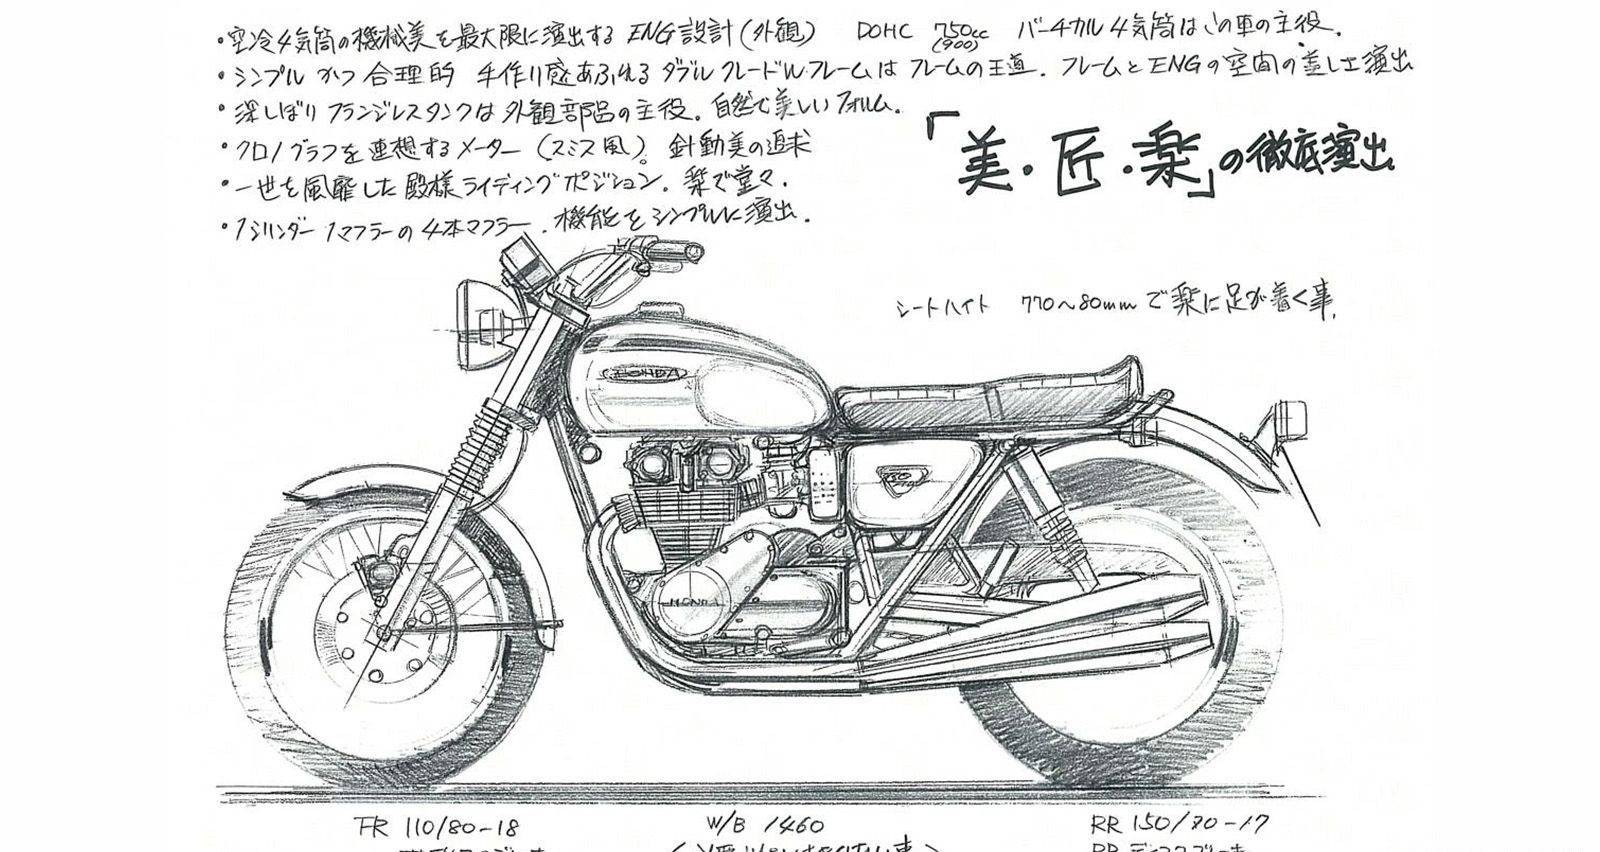 ・空冷4気筒の機械美を最大限に演出する ENG設計(外観) DOHC 750cc バーチカル4気筒はこの車の主役.
(900)
・シンプルかつ合理的 手作り感あふれるダブルクレードルフレームはフレームの王道. フレームとENGの空間の差し土演出
・深しぼりフランジレスタンクは外観部品の主役. 自然で美しいフォルム.
・クロノグラフを連想するメーター(スミス風)。 針動美の追求
・一世を風靡した殿様ライディングポジション. 楽で堂々.
・1シリンダー1マフラーの4本マフラー. 機能をシンプルに演出.
「美・匠・楽」の徹底演出
シートハイト 770~80mmで楽に足が着く事.
HONDA
750
HONDA
FR 110/80-18 W/B 1460 RR 150/70-17
RR ディスクブレーキ